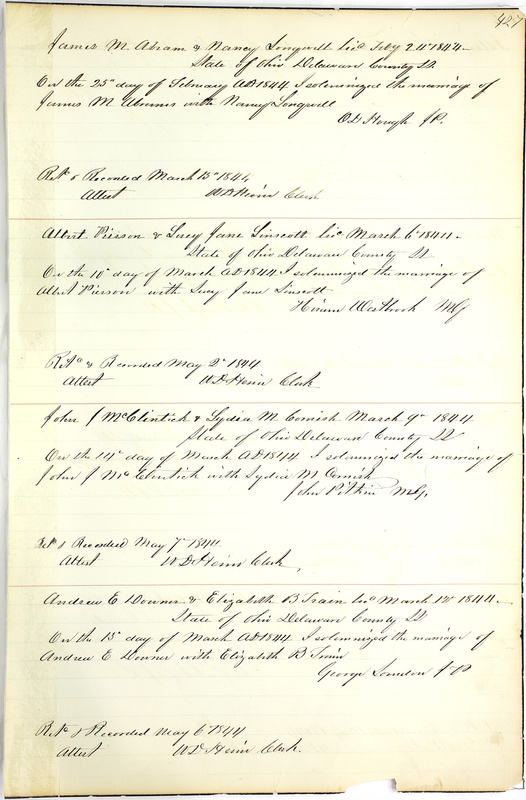 427
James M. Abram & Nancy Longwell Lic.d Feby 24th 1844
State of Ohio Delaware County SS
On the 25th day of February AD 1844 I solemnized the marriage of
James M with Nancy Longwell
Hough J P.
Ret.d & Recorded March 13th 1844
Attest W D Heim Clerk
Albert Pierson & Lucy Jane Linscott Lic.d March 6th 1844
State of Ohio Delaware County SS
On the 10th day of March AD 1844 I solemnized the marriage of
Albert Pierson with Lucy Jane Linscott
Hiram Westbrook M G
Ret.d & Recorded May 2d 1844
Attest W D Heim Clerk
John J McClintick & Lydia M Cornish March 9th 1844
State of Ohio Delaware County SS
On the 14th day of March AD 1844 I solemnized the marriage of
John J McClintick with Lydia M Cornish
John Pitkin M G.
Ret.d & Recorded May 7th 1844
Attest W D Heim Clerk
Andrew E Downer & Elizabeth B Train Lic.d March 12th 1844
State of Ohio Delaware County SS
On the 13th day of March AD 1844 I solemnized the marriage of
Andrew E Downer with Elizabeth B Train
George J P
Ret.d & Recorded May 6th 1844
Attest W D Heim Clerk.